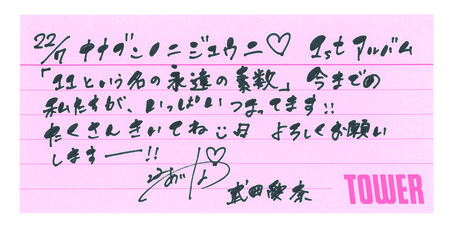 22/7 ナナブンノニジュウニ♡ 1stアルバム
「11という名の永遠の素数」今までの
私たちが、いっぱいつまってます!!
たくさんきいてね よろしくお願い
しますー!!
武田愛奈
TOWER